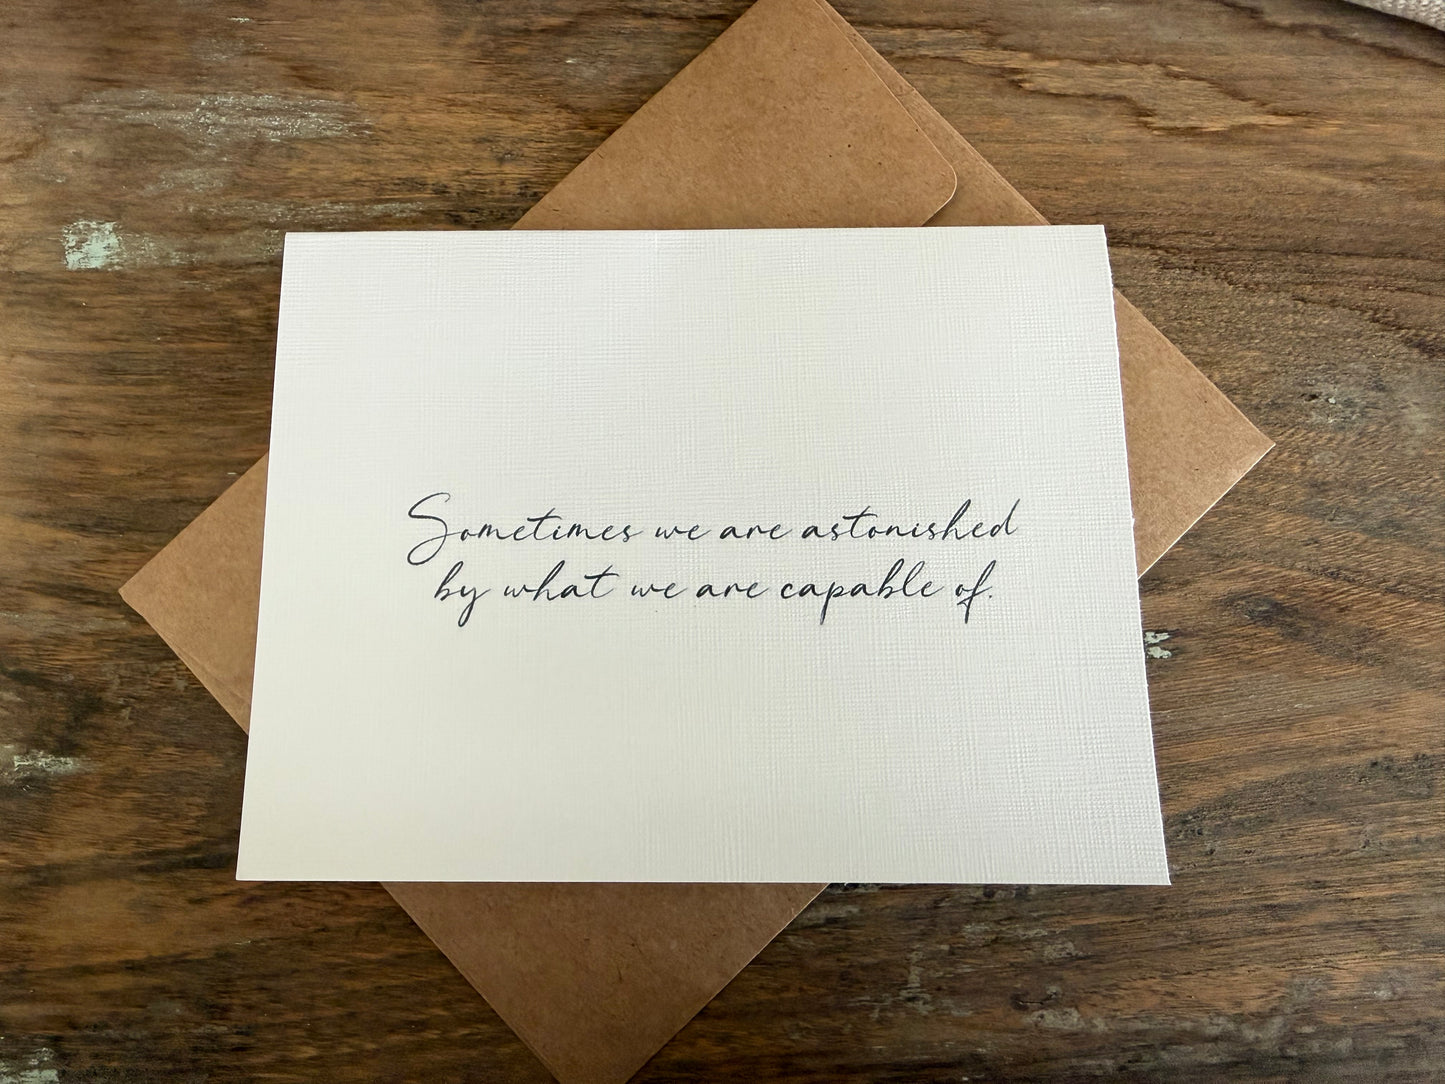 Sometimes we are astonished
by what we are capable of.